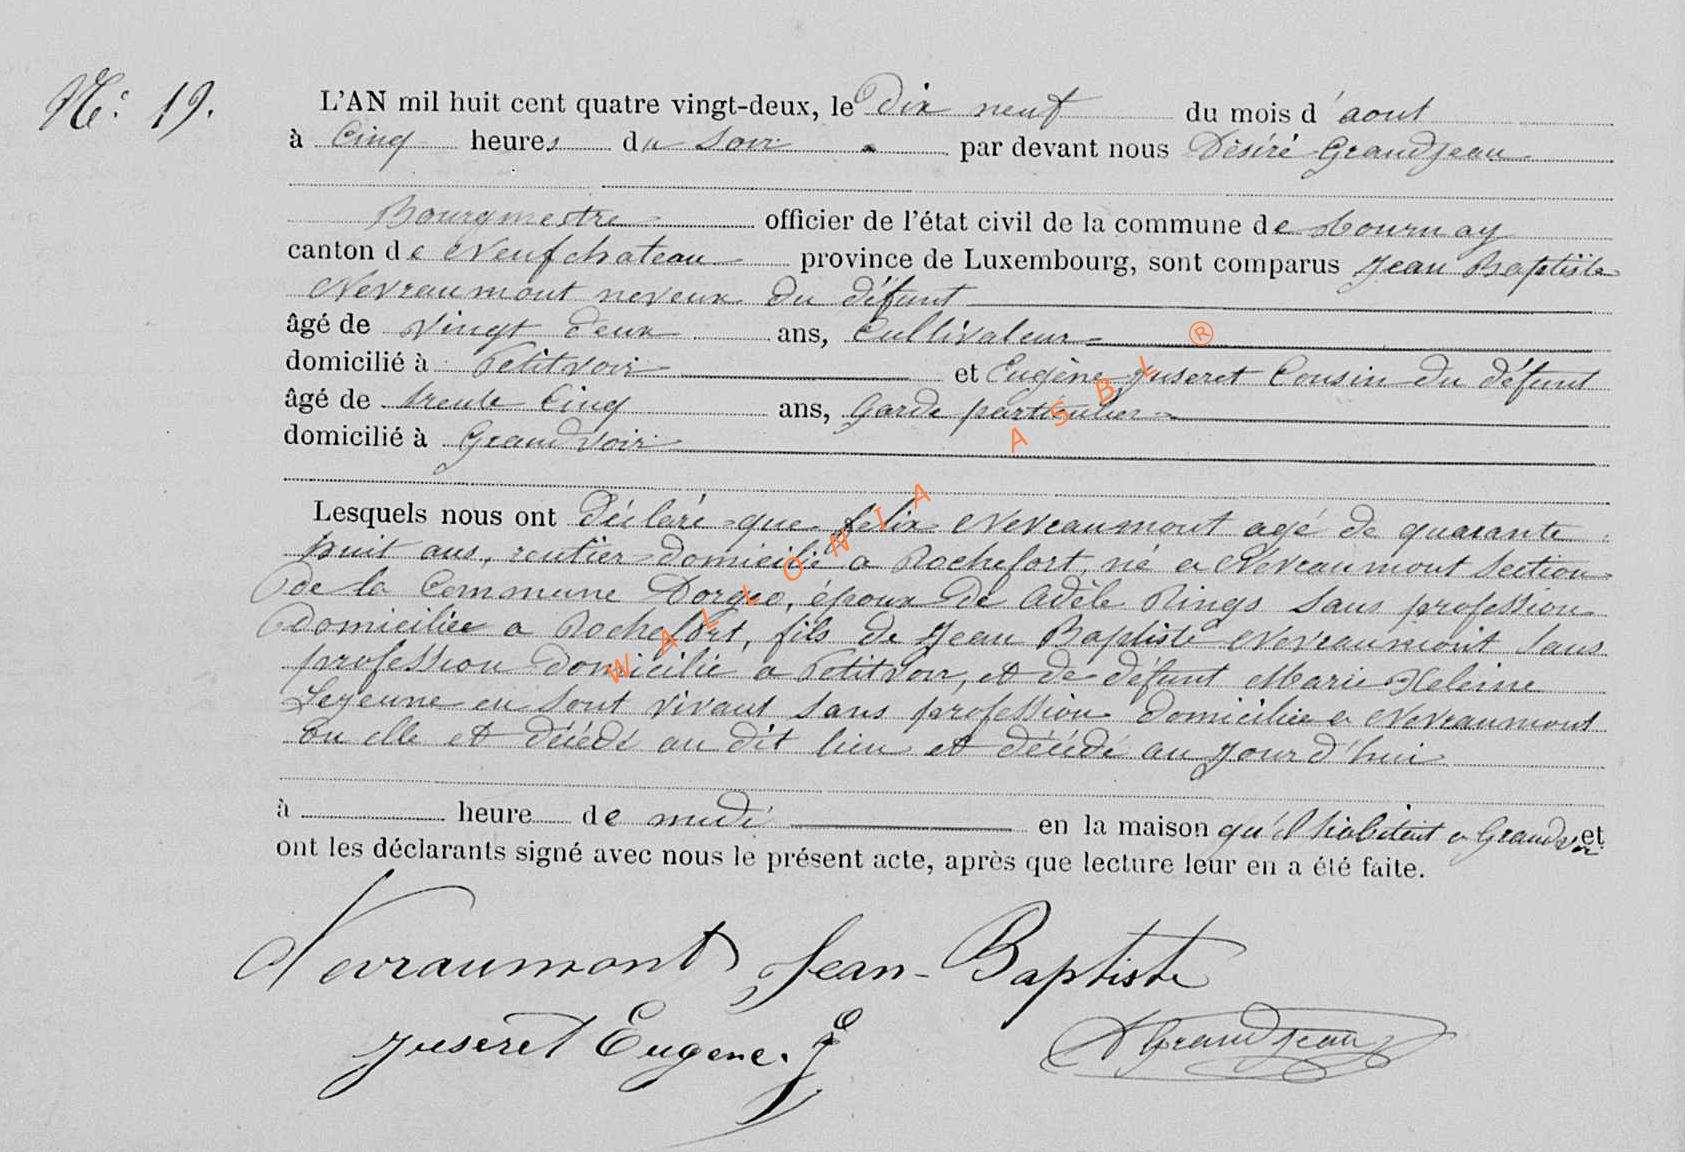 N.: 19.
L'AN mil huit cent quatre vingt-deux, le dix neuf du mois d'aout
à Cinq heures du Soir par devant nous Désiré Grandjean
Bourgmestre officier de l'état civil de la commune de Tournay
canton de Neufchateau province de Luxembourg, sont comparus Jean Baptiste
Nevraumont neveux du défunt
âgé de vingt deux ans, Cultivateur
domicilié à Petitvoir et Eugène Juseret Cousin du défunt
âgé de trente Cinq ans, Garde particulier
domicilié à Grandvoir
Lesquels nous ont déclaré que félix Nevraumont agé de quarante
huit ans, rentier domicilié a Rochefort, né a Nevraumont Section
de la Commune Dorgeo, époux de Adèle Rings Sans profession
domiciliée a Rochefort, fils de Jean Baptiste Nevraumont Sans
profession domicilié a Petitvoir, et de défunt Marie Heleine
Lejeune en Sont vivant sans profession domiciliée a Nevraumont
ou elle et décédé au dit lieu et décédé au jourd'hui
à heure de midi en la maison qu'il habitait a Grandvoir et
ont les déclarants signé avec nous le présent acte, après que lecture leur en a été faite.
Nevraumont Jean-Baptiste
Juseret Eugene.
D Grandjean
WALLONIA ASBL ®